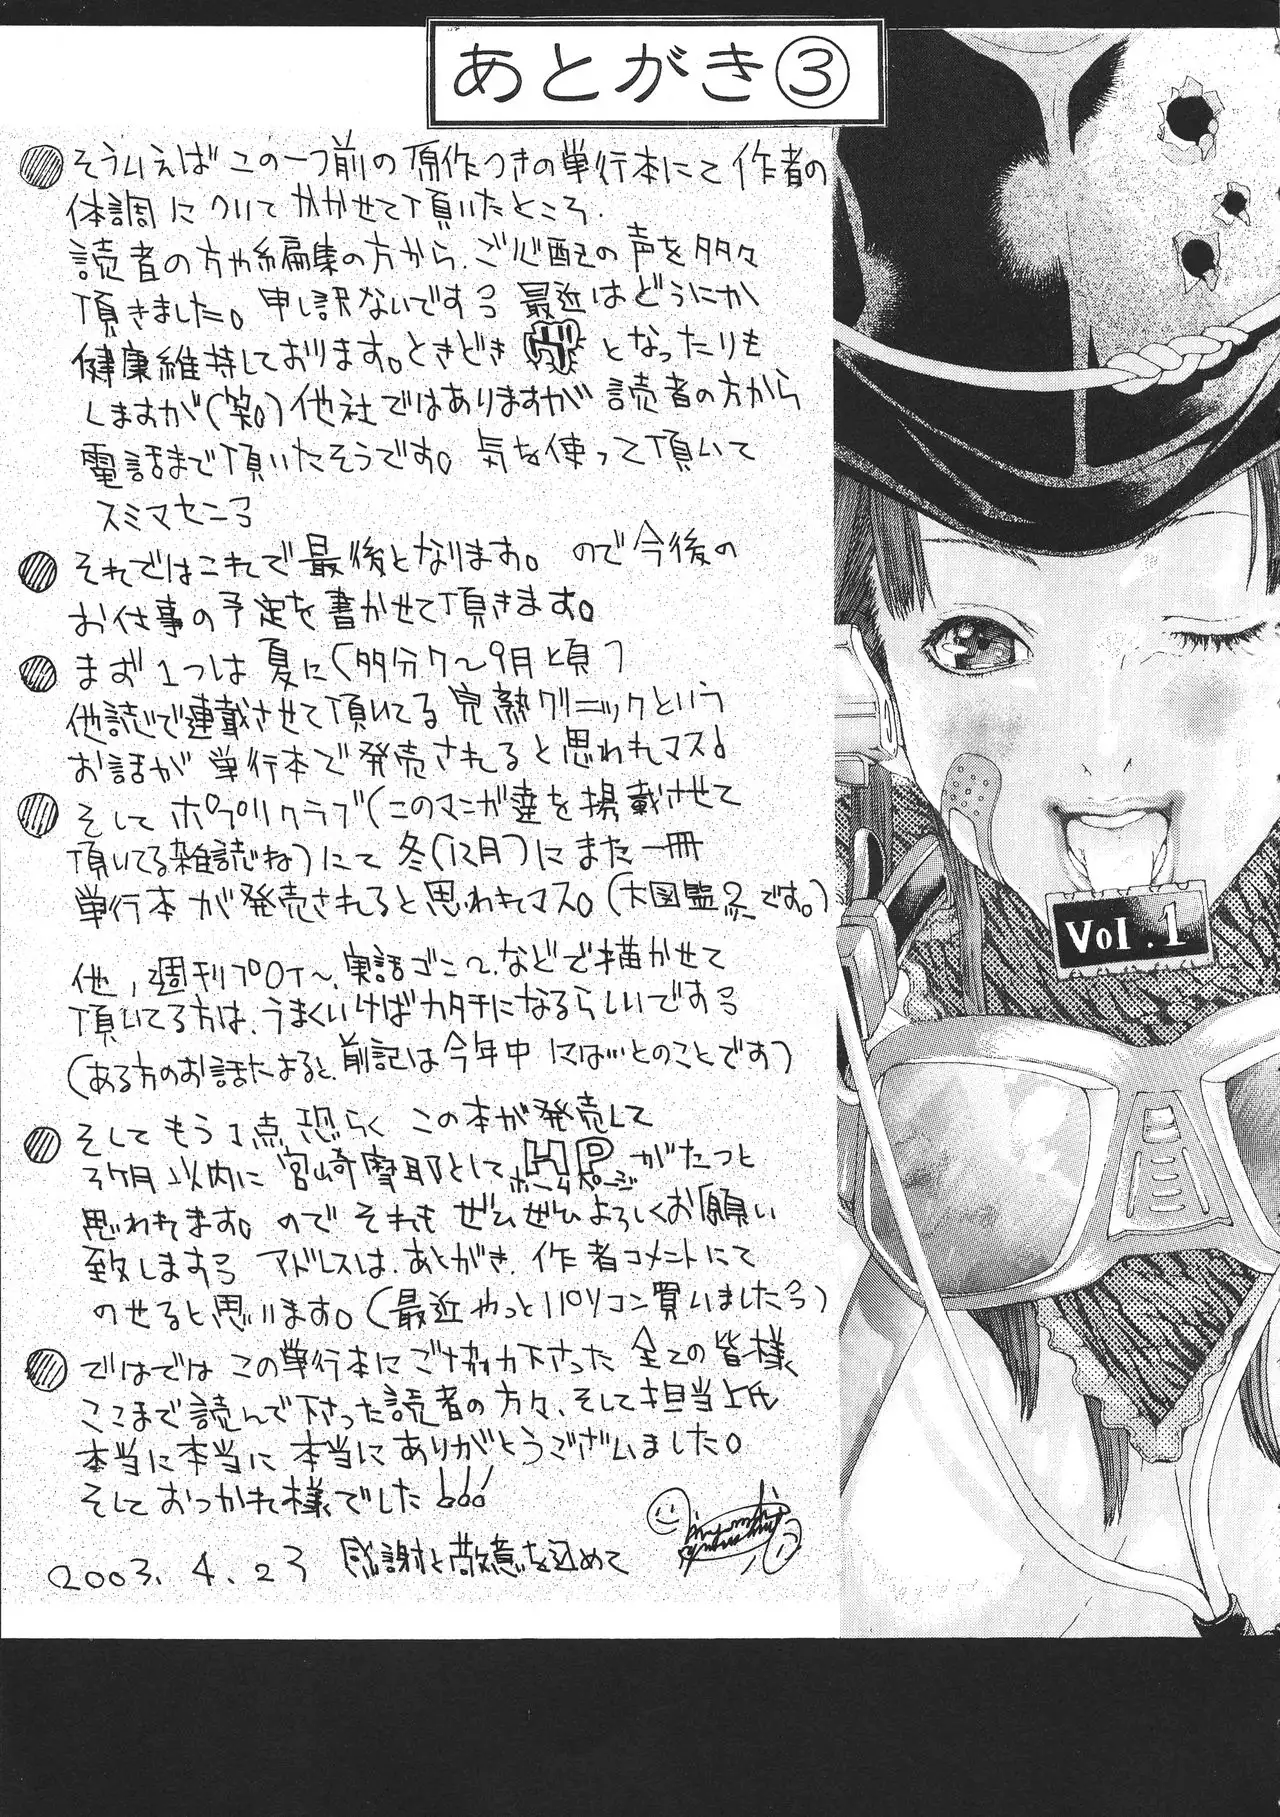 あとがき③
そういえばこの一つ前の原作つきの単行本にて作者の
体調についてかかせて頂いたところ、
読者の方や編集の方から、ご心配の声を多々
頂きました。申し訳ないですっ 最近はどうにか
健康維持しております。ときどき となったりも
しますが(笑。)他社ではありますが読者の方から
電話まで頂いたそうです。気を使って頂いて
スミマセンっ
それではこれで最後となります。ので今後の
お仕事の予定を書かせて頂きます。
まず1つは夏に(多分7〜9月頃)
他誌で連載させて頂いてる完熟クリニックという
お話が単行本で発売されると思われマス♪
そしてポプリクラブ(このマンガ達を掲載させて
頂いてる雑誌ね)にて冬(12月)にまた一冊
単行本が発売されると思われマス。(大図鑑2です。)
他、週刊プロイ〜、実話ゴン〜、などで描かせて
頂いてる方は、うまくいけばカタチになるらしいですっ
(ある方のお話によると、前記は今年中にはいとのことです)
そしてもう1点、恐らくこの本が発売して
3ヶ月以内に宮崎摩耶としてHPがたつと
ホームページ
思われます。のでそれもぜひぜひよろしくお願い
致しますっ アドレスは、あとがき、作者コメントにて
のせると思います。(最近やっとパソコン買いましたっ)
ではではこの単行本にご協力下さった全ての皆様、
ここまで読んで下さった読者の方々、そして担当上氏
本当に本当に本当にありがとうございました。
そしておつかれ様でした!!!
2003.4.23 感謝と敬意を込めて
Vol.1